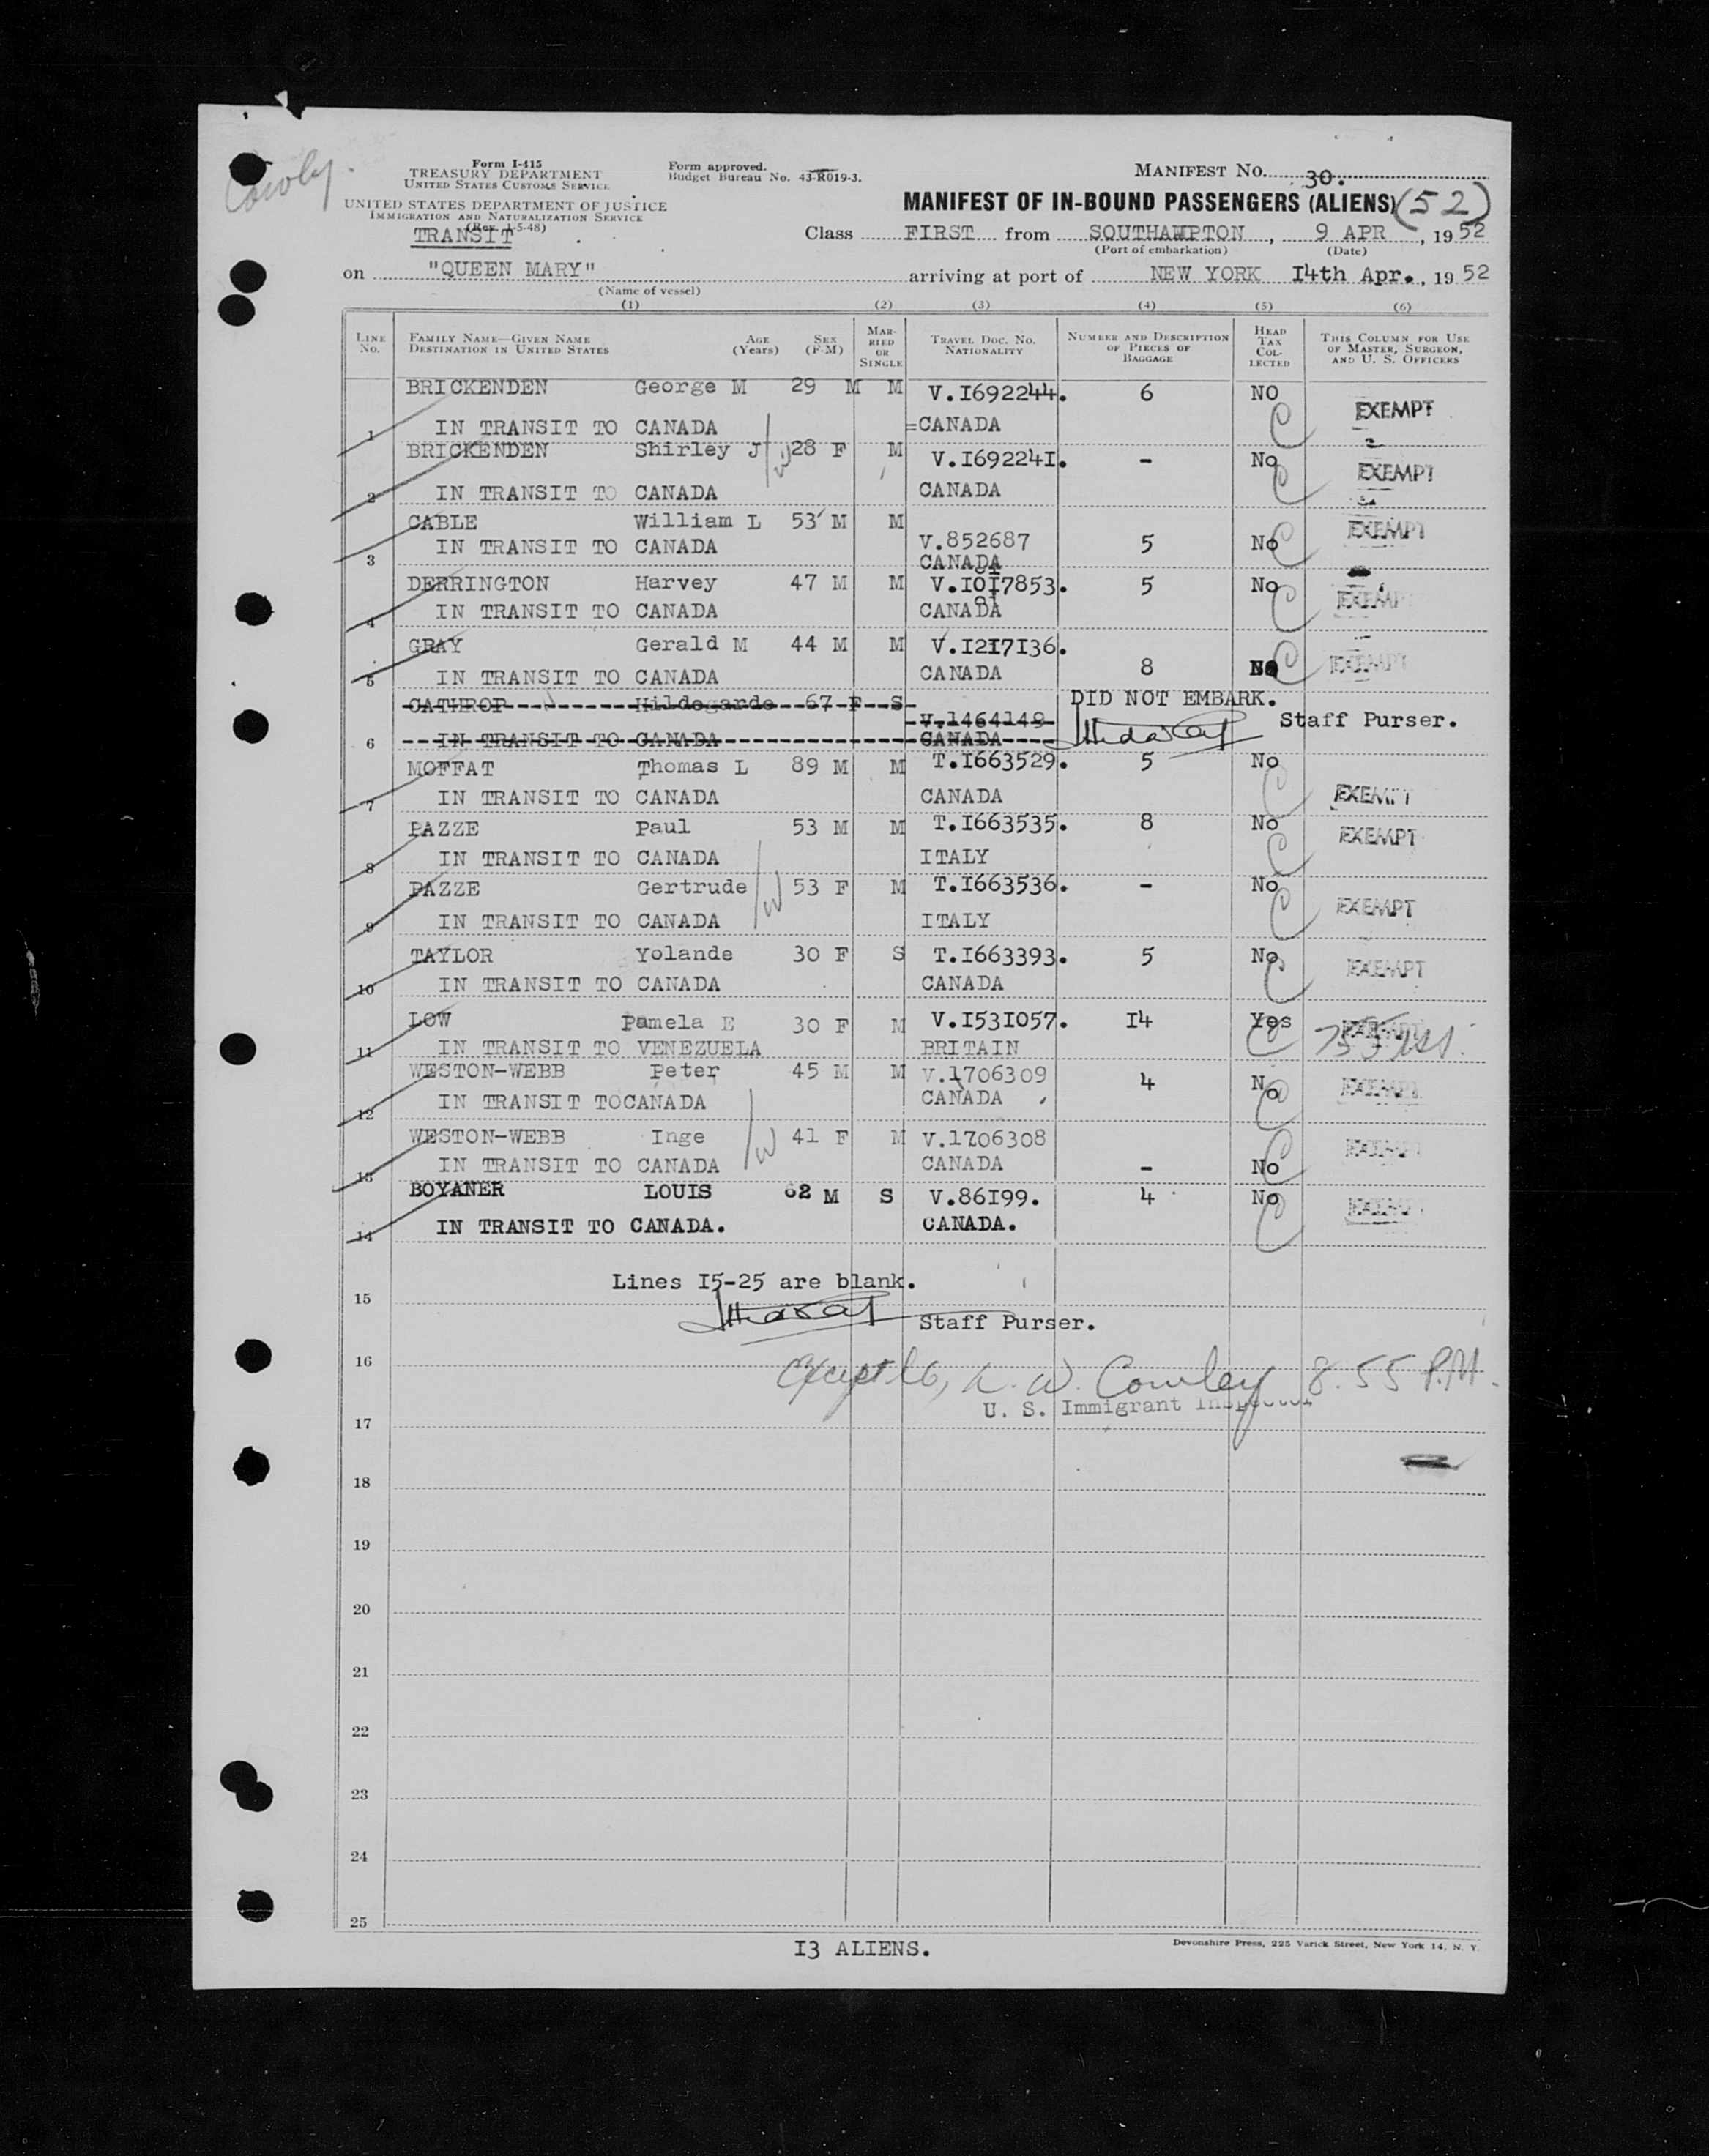 Cowley.
Form I-415
TREASURY DEPARTMENT
UNITED STATES CUSTOMS SERVICE
Form approved.
Budget Bureau No. 43-R019-3.
MANIFEST No. 30.
UNITED STATES DEPARTMENT OF JUSTICE
IMMIGRATION AND NATURALIZATION SERVICE
(Rev. 1-5-48)
MANIFEST OF IN-BOUND PASSENGERS (ALIENS) (52)
TRANSIT
Class FIRST from SOUTHAMPTON, 9 APR, 1952
(Port of embarkation) (Date)
on "QUEEN MARY" arriving at port of NEW YORK 14th Apr., 1952
(Name of vessel)
(1) (2) (3) (4) (5) (6)
LINE No. FAMILY NAME—GIVEN NAME DESTINATION IN UNITED STATES AGE (Years) SEX (F-M) MARRIED OR SINGLE TRAVEL DOC. NO. NATIONALITY NUMBER AND DESCRIPTION OF PIECES OF BAGGAGE HEAD TAX COLLECTED THIS COLUMN FOR USE OF MASTER, SURGEON, AND U. S. OFFICERS
BRICKENDEN George M 29 M M V.I692244. 6 NO EXEMPT
1 IN TRANSIT TO CANADA =CANADA C
BRICKENDEN Shirley J W 28 F M V.I69224I. - No EXEMPT
2 IN TRANSIT TO CANADA CANADA C
CABLE William L 53 M M EXEMPT
3 IN TRANSIT TO CANADA V.852687 CANADA 5 No C
DERRINGTON Harvey 47 M M V.I0I7853. 5 No EXEMPT
4 IN TRANSIT TO CANADA CANADA C
GRAY Gerald M 44 M M V.I2I7I36.
5 IN TRANSIT TO CANADA CANADA 8 No C EXEMPT
GATHROP Hildegarde 67 F S V.1464149 DID NOT EMBARK.
6 IN TRANSIT TO CANADA CANADA Staff Purser.
MOFFAT Thomas L 89 M M T.I663529. 5 No
7 IN TRANSIT TO CANADA CANADA C EXEMPT
PAZZE Paul 53 M M T.I663535. 8 No EXEMPT
8 IN TRANSIT TO CANADA ITALY C
PAZZE Gertrude W 53 F M T.I663536. - No EXEMPT
9 IN TRANSIT TO CANADA ITALY C
TAYLOR Yolande 30 F S T.I663393. 5 No EXEMPT
10 IN TRANSIT TO CANADA CANADA C
LOW Pamela E 30 F M V.I53I057. I4 Yes
11 IN TRANSIT TO VENEZUELA BRITAIN C
WESTON-WEBB Peter 45 M M V.1706309 4 No EXEMPT
12 IN TRANSIT TOCANADA CANADA C
WESTON-WEBB Inge W 41 F M V.1706308 EXEMPT
13 IN TRANSIT TO CANADA CANADA - No C
BOYANER LOUIS 62 M S V.86I99. 4 No EXEMPT
14 IN TRANSIT TO CANADA. CANADA. C
Lines I5-25 are blank.
15
Staff Purser.
16 Except l6, L. W. Cowley 8.55 P.M.
U. S. Immigrant Inspector
17
18
19
20
21
22
23
24
25
I3 ALIENS.
Devonshire Press, 225 Varick Street, New York 14, N. Y.